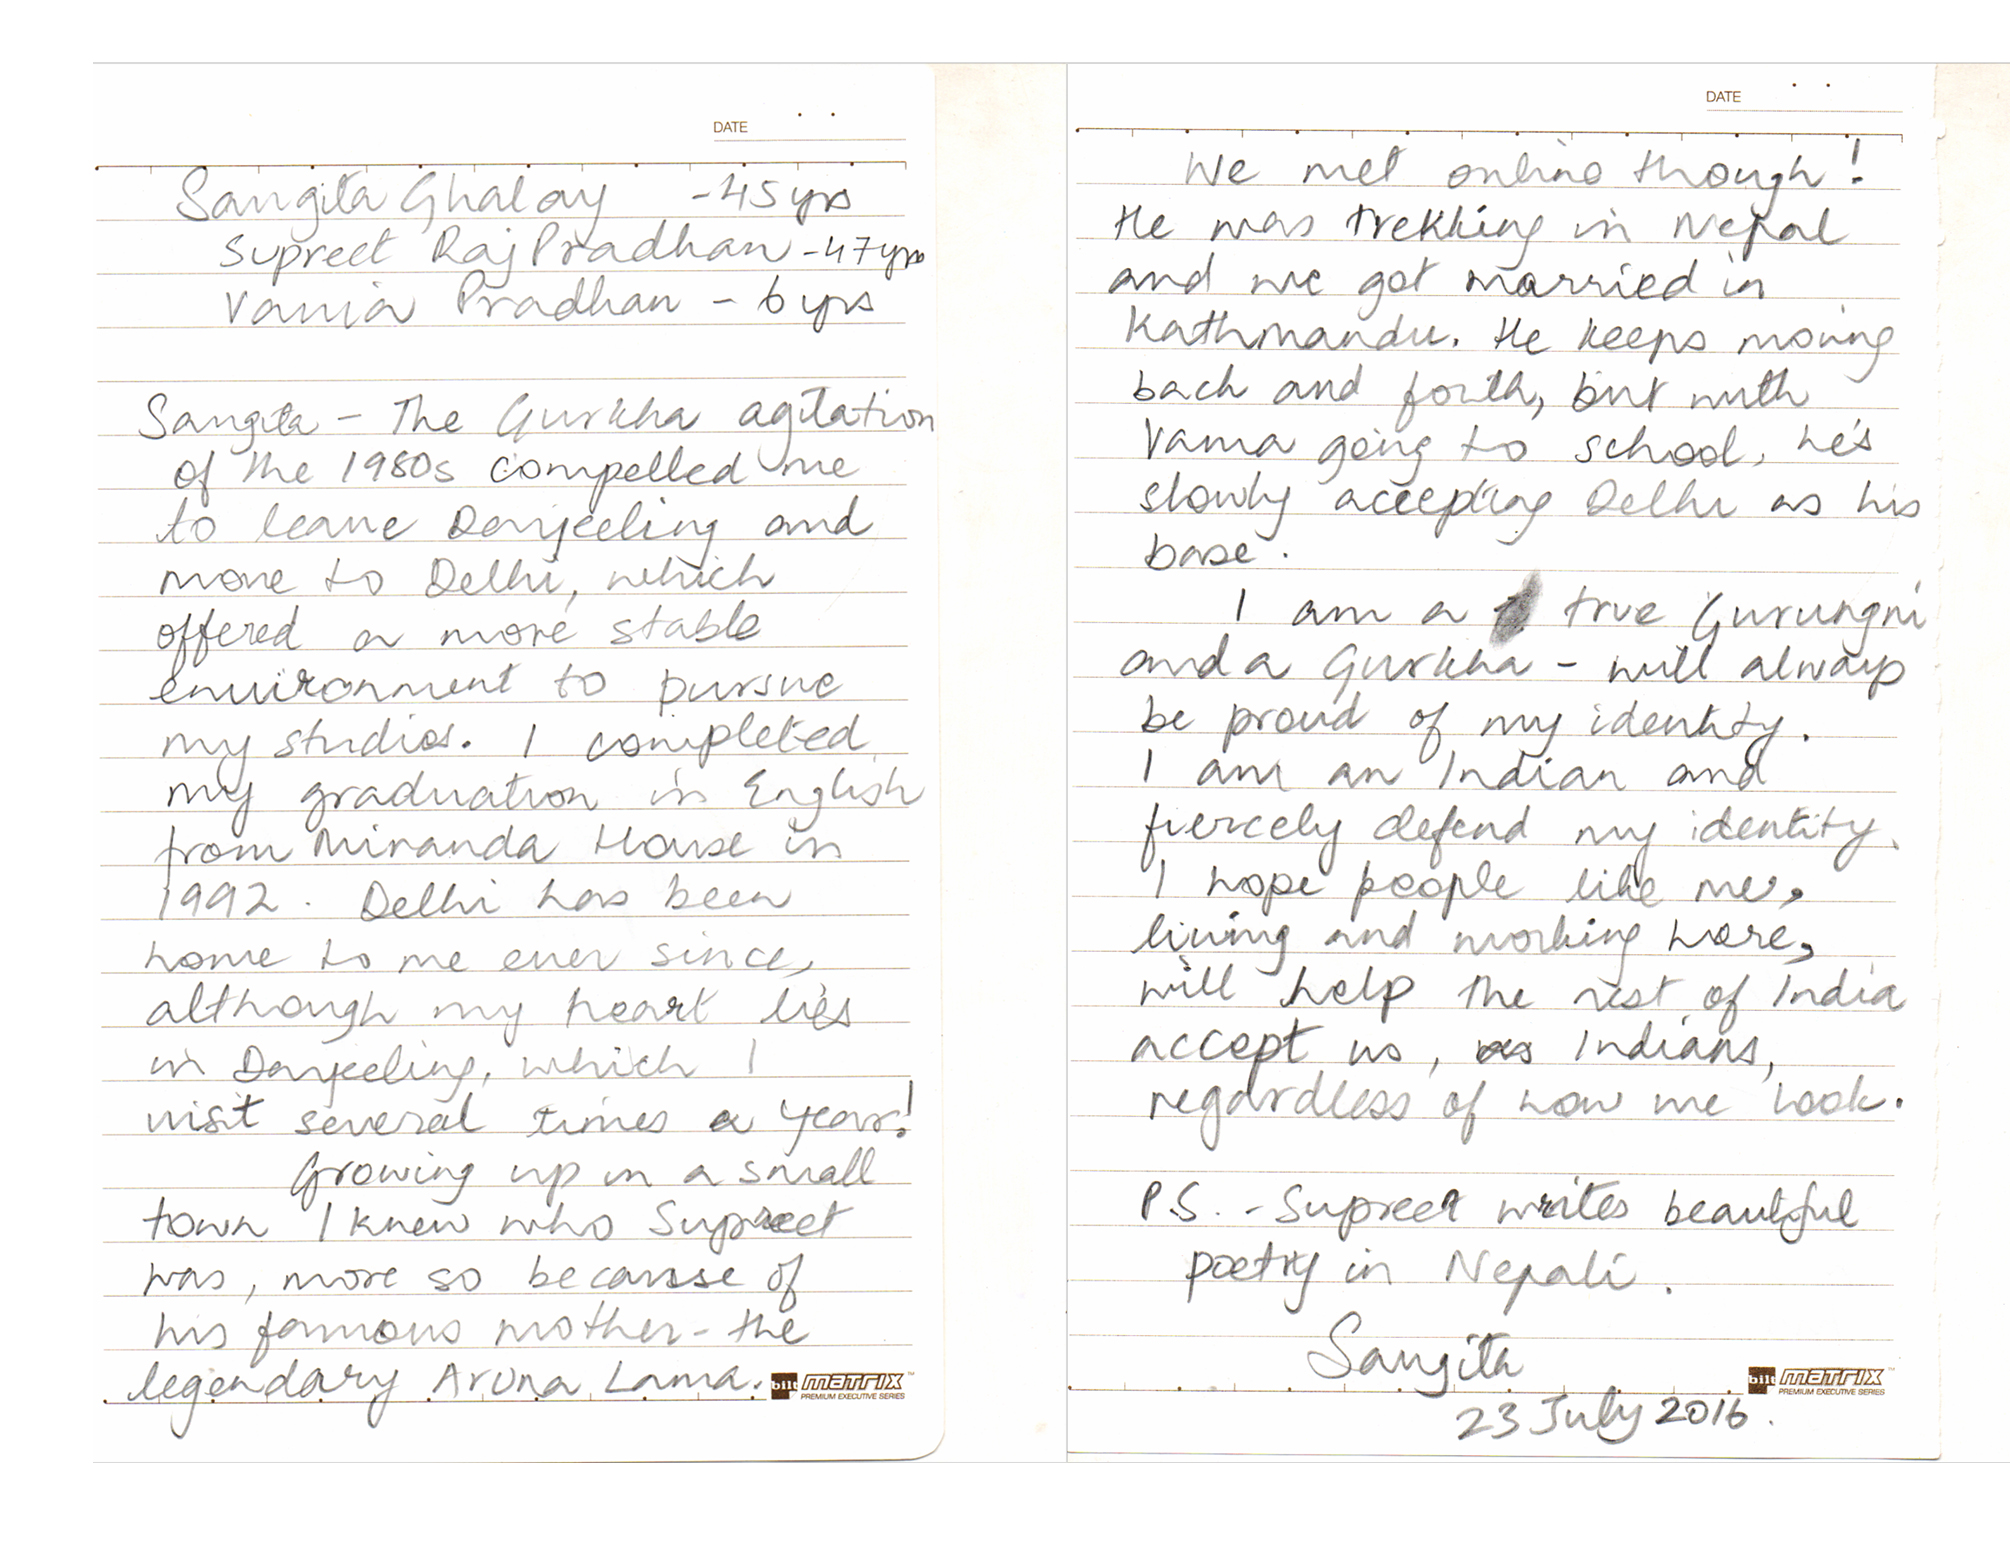 DATE
Sangita Ghalay - 45 yrs
Supreet Raj Pradhan - 47 yrs
Vamia Pradhan - 6 yrs
Sangita - The Gurkha agitation
of the 1980s compelled me
to leave Darjeeling and
move to Delhi, which
offered a more stable
environment to pursue
my studies. I completed
my graduation in English
from Miranda House in
1992. Delhi has been
home to me ever since,
although my heart lies
in Darjeeling, which I
visit several times a year!
Growing up in a small
town I knew who Supreet
was, more so because of
his famous mother - the
legendary Aruna Lama.
bilt MATRIX™
PREMIUM EXECUTIVE SERIES
DATE
We met online though!
He was trekking in Nepal
and we got married in
Kathmandu. He keeps moving
back and forth, but with
Vama going to school, he's
slowly accepting Delhi as his
base.
I am a true Gurungni
and a Gurkha - will always
be proud of my identity.
I am an Indian and
fiercely defend my identity.
I hope people like me,
living and working here,
will help the rest of India
accept us, as Indians,
regardless of how we look.
P.S. - Supreet writes beautiful
poetry in Nepali.
Sangita
23 July 2016.
bilt MATRIX™
PREMIUM EXECUTIVE SERIES